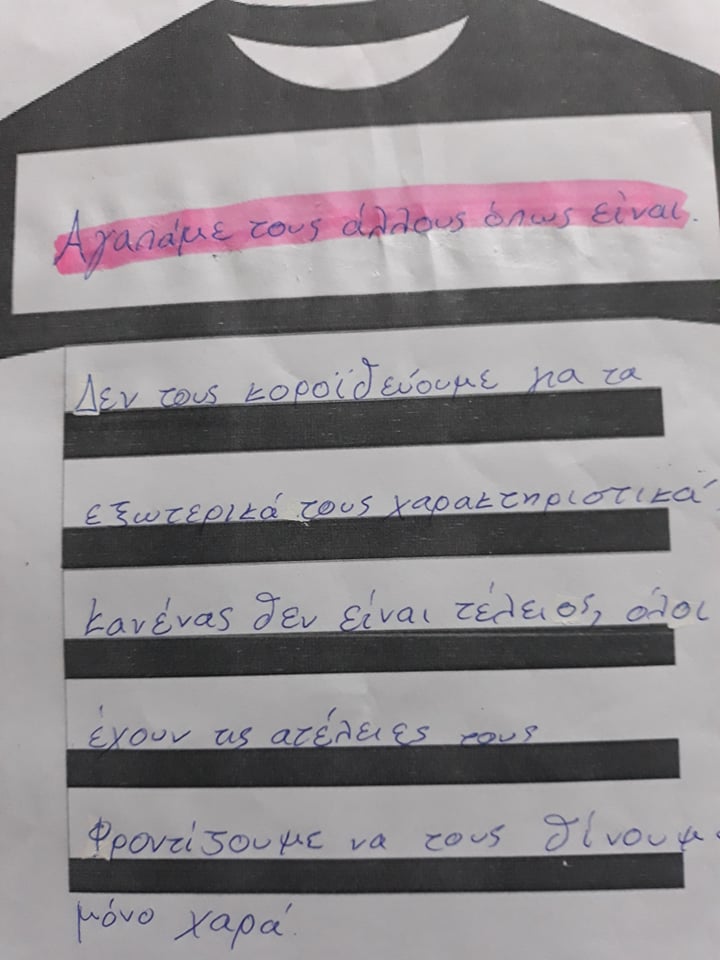 Αγαπάμε τους άλλους όπως είναι.
Δεν τους κοροϊδεύουμε για τα
εξωτερικά τους χαρακτηριστικά
κανένας δεν είναι τέλειος, όλοι
έχουν τις ατέλειες τους
Φροντίζουμε να τους δίνουμε
μόνο χαρά.